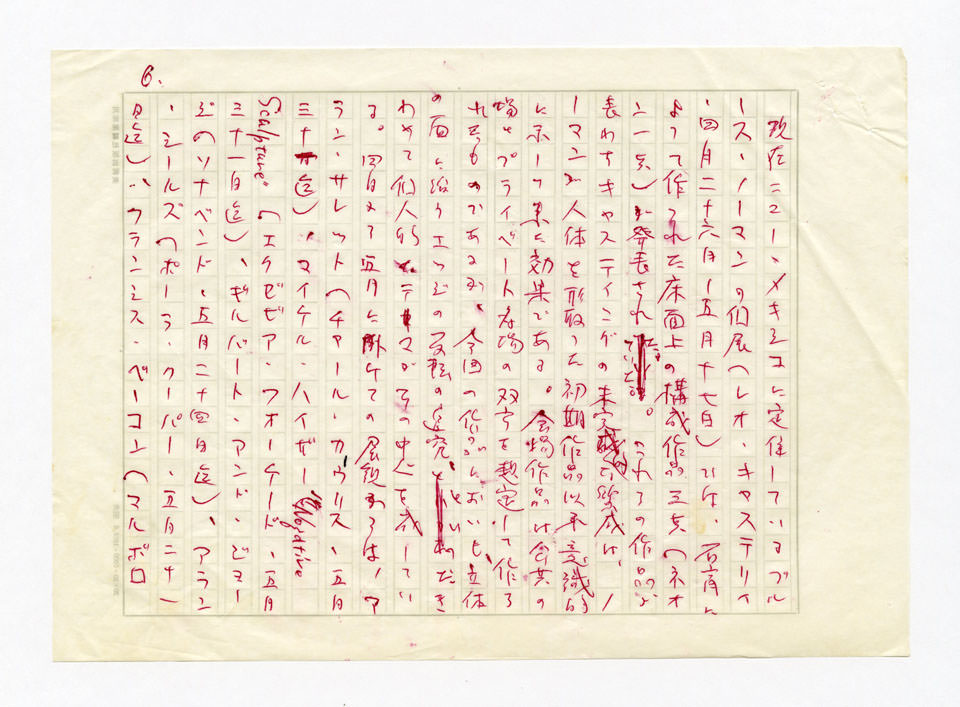 6.
現在ニュー・メキシコに定住しているブル
ース・ノーマンの個展(レオ・キャステリイ
・四月二十六日ー五月十七日)では、石膏に
よって作られた床面上の構成作品三点(ネオ
ン一点)が発表され
。これらの作品が
表わすキャスティングの未完成的完成は、ノ
ーマンが人体を形取った初期作品以来意識的
に示して来た効果である。会場作品は公共の
場とプライベートな場の双方を想定して作ら
れたものであるが、今回の作品においても、立体
の面に沿うエッジの反転の追究といわだき
わめて個人的なテーマがその中心を成してい
る。四月又は五月に掛けての展覧会では、ア
ラン・サレット(チャールス・カウリス、五月
三十日迄)、マイケル・ハイザー "Negative
Sculpture" (エグゼビア・フォーケード、五月
三十一日迄)、ギルバート・アンド・ジョー
ジ(ソナベンド、五月二十四日迄)、アラン
・シールズ(ポーラ・クーパー、五月二十一
日迄)、フランシス・ベーコン(マルボロ